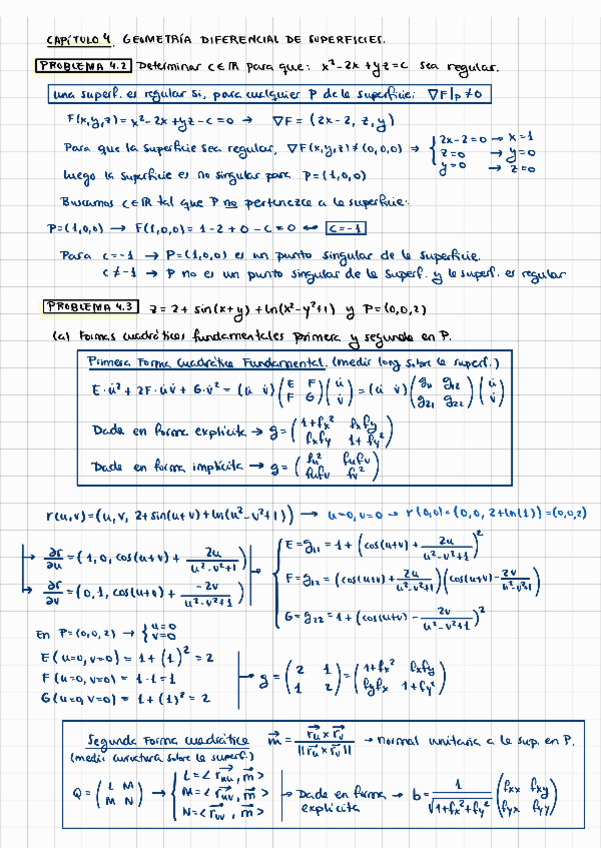 CAPÍTULO 4. GEOMETRÍA DIFERENCIAL DE SUPERFICIES.
PROBLEMA 4.2 Determinar c∈ℝ para que: x²-2x+yz=c sea regular.
Una superf. es regular si, para cualquier P de la superficie: ∇F|p ≠ 0
F(x,y,z)=x²-2x+yz-c=0 → ∇F = (2x-2, z, y)
Para que la superficie sea regular, ∇F(x,y,z)≠(0,0,0) → { 2x-2=0 → x=1
z=0 → y=0
y=0 → z=0
Luego la superficie es no singular para P=(1,0,0)
Buscamos c∈ℝ tal que P no pertenezca a la superficie:
P=(1,0,0) → F(1,0,0)= 1-2+0-c=0 ↔ c=-1
Para c=-1 → P=(1,0,0) es un punto singular de la superficie.
c≠-1 → P no es un punto singular de la superf. y la superf. es regular
PROBLEMA 4.3 z=2+sin(x+y)+ln(x²-y²+1) y P=(0,0,2)
(a) Formas cuadráticas fundamentales primera y segunda en P.
Primera Forma Cuadrática Fundamental. (medir long sobre la superf.)
E·u̇²+2F·u̇v̇+G·v̇² = (u̇ v̇) (E F; F G) (u̇; v̇) = (u̇ v̇) (g₁₁ g₁₂; g₂₁ g₂₂) (u̇; v̇)
Dada en forma explícita → g = (1+fx² fxfy; fxfy 1+fy²)
Dada en forma implícita → g = (fu² fufv; fufv fv²)
r(u,v)=(u,v, 2+sin(u+v)+ln(u²-v²+1)) → u=0,v=0 → r(0,0)=(0,0,2+ln(1))=(0,0,2)
∂r/∂u = (1, 0, cos(u+v)+ 2u/(u²-v²+1))
∂r/∂v = (0, 1, cos(u+v)+ -2v/(u²-v²+1))
E=g₁₁=1+(cos(u+v)+ 2u/(u²-v²+1))²
F=g₁₂=(cos(u+v)+ 2u/(u²-v²+1))(cos(u+v)- 2v/(u²-v²+1))
G=g₂₂=1+(cos(u+v)- 2v/(u²-v²+1))²
En P=(0,0,2) → { u=0
v=0
E(u=0,v=0) = 1+(1)² = 2
F(u=0,v=0) = 1·1=1
G(u=0,v=0) = 1+(1)² = 2
→ g = (2 1; 1 2) = (1+fx² fxfy; fyfx 1+fy²)
Segunda Forma Cuadrática m⃗ = r⃗u × r⃗v / ||r⃗u × r⃗v|| → normal unitaria a la sup. en P.
(medir curvatura sobre la superf.)
Q = (L M; M N) → { L=< r⃗uu, m⃗ >
M=< r⃗uv, m⃗ >
N=< r⃗vv, m⃗ >
→ Dada en forma explícita → b = 1/√(1+fx²+fy²) (fxx fxy; fyx fyy)